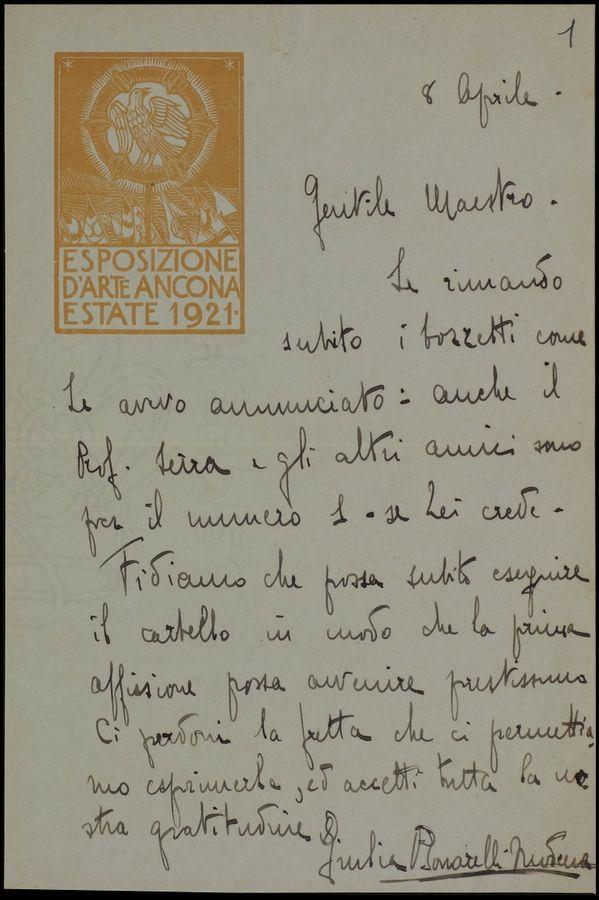 1
8 Aprile -
ESPOSIZIONE
D'ARTE ANCONA
ESTATE 1921.
Gentile Maestro -
Le rimando
subito i bozzetti come
Le avevo annunciato: anche il
Prof. Serra e gli altri amici sono
per il numero 1 - se Lei crede -
Fidiamo che possa subito eseguire
il cartello in modo che la prima
affissione possa avvenire prestissimo
Ci perdoni la fretta che ci permettia
mo esprimerle, ed accetti tutta la no
stra gratitudine
Giulia Bonarelli Modena